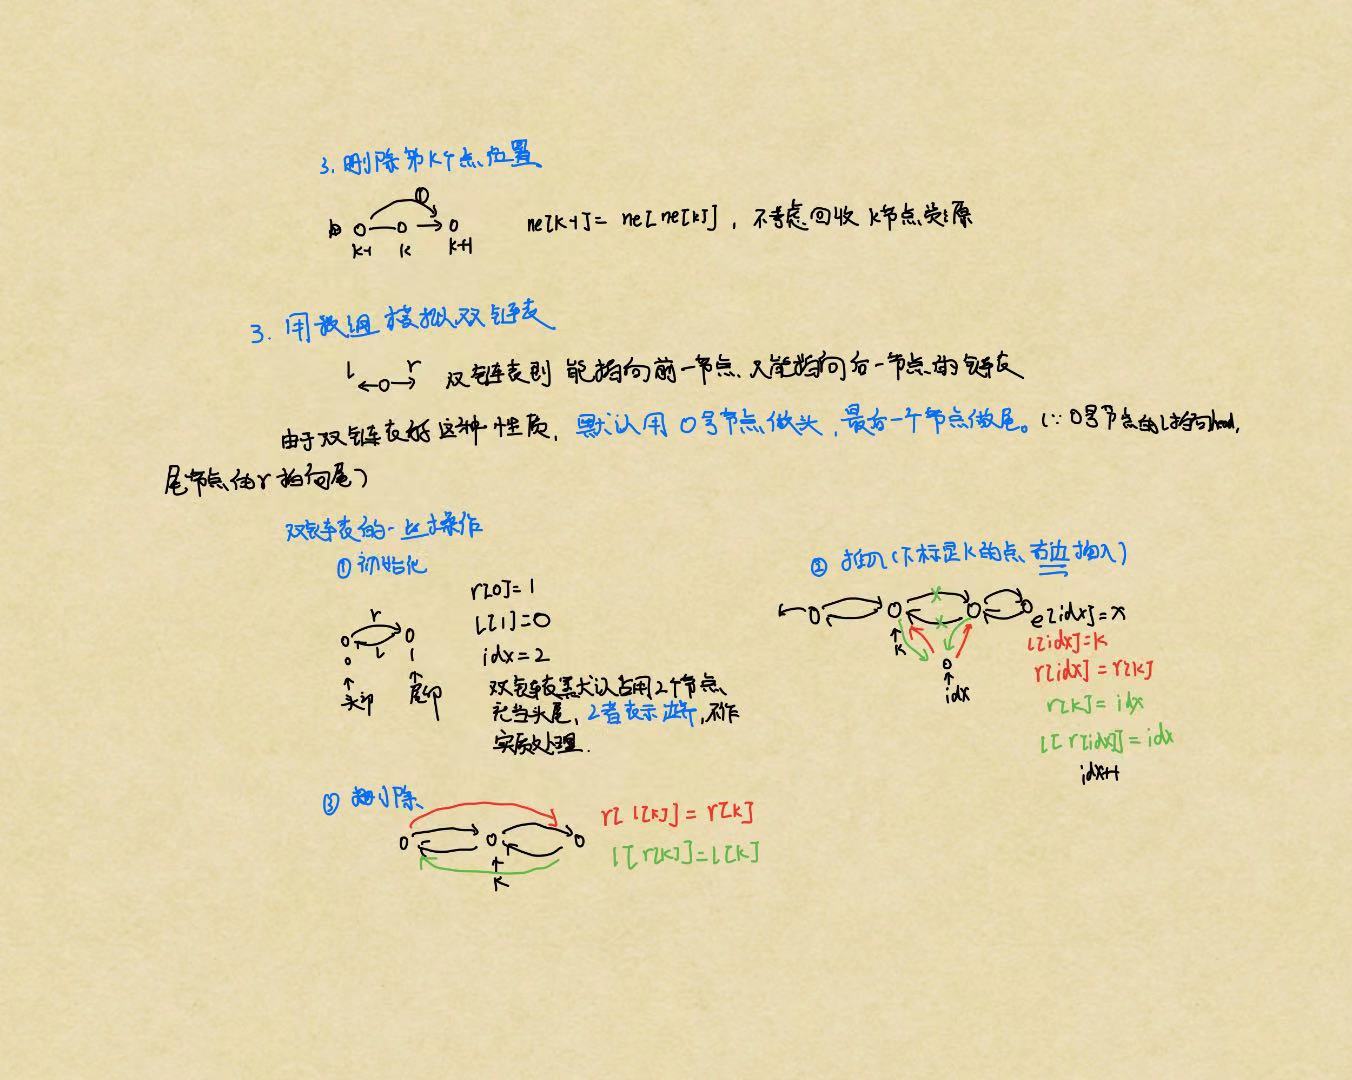 3. 删除第k个点位置
ne[k-1] = ne[ne[k]], 不考虑回收 k节点资源
k-1 k k+1
3. 用数组模拟双链表
l r 双链表则 能指向前一节点、又能指向后一节点的链表
由于双链表有这种性质, 默认用 0号节点做头, 最后一个节点做尾。(∵ 0号节点的l指向head,
尾节点的r指向尾)
双链表的一些操作
① 初始化
r[0] = 1
l[1] = 0
idx = 2
双链表默认占用2个节点
充当头尾, 2者表示边界, 不作
实质处理.
r
l
0 1
头节 尾节
② 插入(下标是k的点 右边 插入)
k
idx
e[idx] = x
l[idx] = k
r[idx] = r[k]
r[k] = idx
l[r[idx]] = idx
idx++
③ 删除
k
r[l[k]] = r[k]
l[r[k]] = l[k]